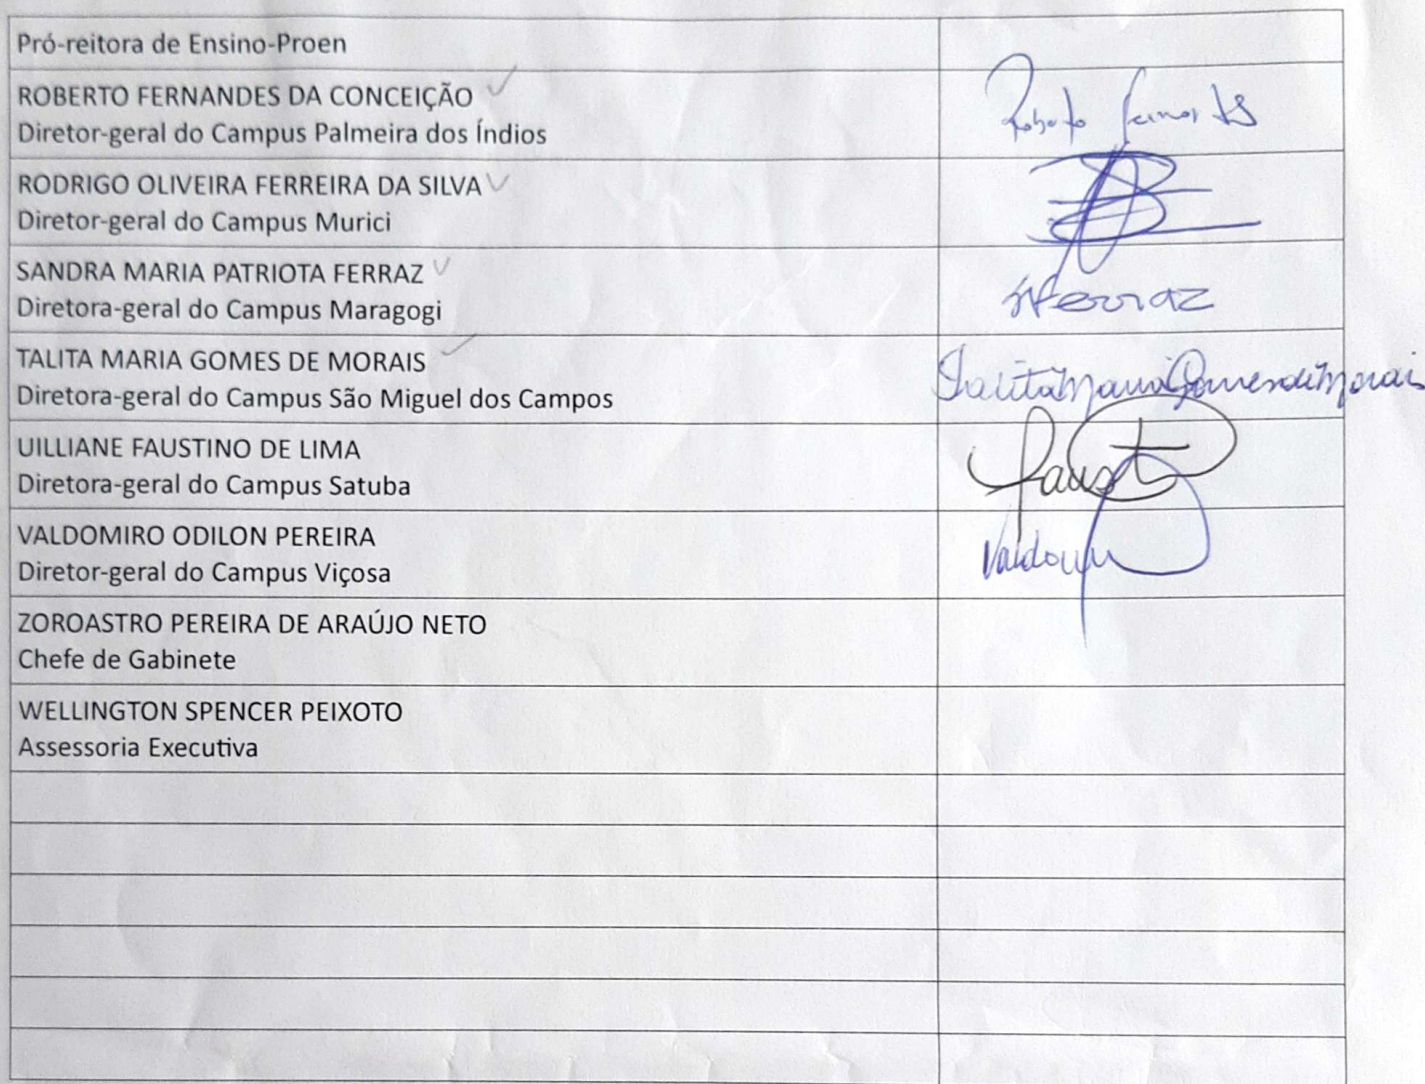 Pró-reitora de Ensino-Proen
ROBERTO FERNANDES DA CONCEIÇÃO
Diretor-geral do Campus Palmeira dos Índios
Roberto Fernandes
RODRIGO OLIVEIRA FERREIRA DA SILVA
Diretor-geral do Campus Murici
SANDRA MARIA PATRIOTA FERRAZ
Diretora-geral do Campus Maragogi
SPFerraz
TALITA MARIA GOMES DE MORAIS
Diretora-geral do Campus São Miguel dos Campos
Talita Maria Gomes de Morais
UILLIANE FAUSTINO DE LIMA
Diretora-geral do Campus Satuba
VALDOMIRO ODILON PEREIRA
Diretor-geral do Campus Viçosa
ZOROASTRO PEREIRA DE ARAÚJO NETO
Chefe de Gabinete
WELLINGTON SPENCER PEIXOTO
Assessoria Executiva